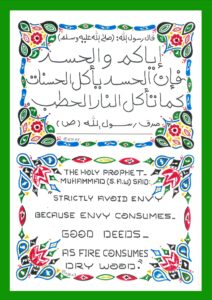 قال رسول الله: (صلى الله عليه وسلم)
إياكم والحسد
فإن الحسد يأكل الحسنات
كما تأكل النار الحطب
صدق رسول الله (ص)
THE HOLY PROPHET
MUHAMMAD (S.A.W) SAID:
STRICTLY AVOID ENVY
BECAUSE ENVY CONSUMES
GOOD DEEDS
AS FIRE CONSUMES
DRY WOOD.